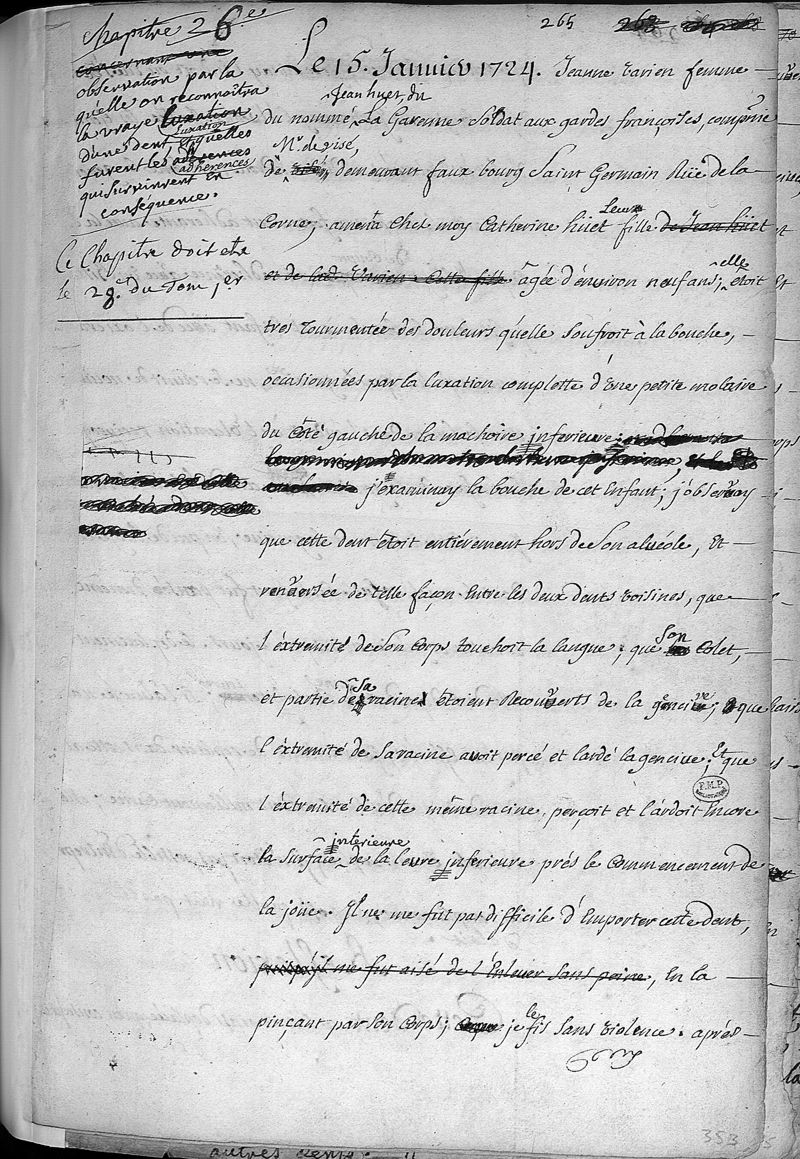 265 268
Chapitre 26e
concernant une
observation par la
quelle on reconnoîtra
la vraye luxation
d'une dent,
luxation
& quelles
furent les
adhérences
qui survinrent en
conséquence.
Ce Chapitre doit etre
le 28e. du Tom 1er
Le 15. Janvier 1724. Jeanne Varien femme
Jean huet, du
du nommé La Garenne Soldat aux gardes françoises, compagnie
Mr. de visé,
de demeurant faux bourg Saint Germain Rüe de la
Corne; amena chez moy Catherine hüet Leur fille de Jean hüet
et de lad. Varien. Cette fille âgée d'environ neuf ans; elle étoit
tres tourmentée des douleurs qu'elle souffroit à la bouche,
occasionnées par la luxation complette d'Une petite molaire
du Côté gauche de la machoire inferieure;
j'examinay la bouche de cet Enfant; j'observay
que cette dent êtoit entiérement hors de Son alvéole, Et
renversée de telle façon Entre les deux dents voisines, que
l'éxtremité de Son Corps touchoit la langue; que Son Colet,
et partie de Sa racine êtoient Recouverts de la gencive; que
l'éxtremité de Sa racine avoit percé et lardé la gencive; Et que
l'éxtremité de cette même racine, perçoit et lardoit Encore
la Surface intérieure de la levre inferieure prés le Commencement de
la joüe. Il ne me fut pas difficile d'Emporter cette dent,
puisqu'il me fut aisé de l'Enlever Sans peine, En la
pinçant par Son Corps; je le fis Sans violence. aprés
353
autres dents